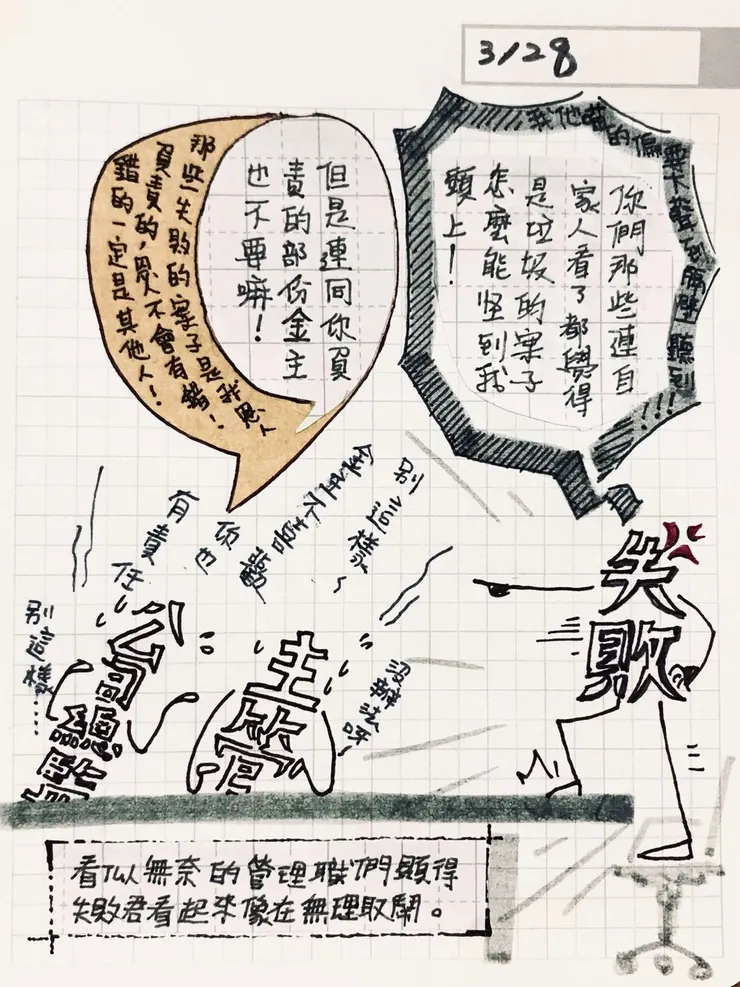 3/28
我他媽的偏要大聲到隔壁聽到!!!
你們那些連自
家人看了都覺得
是垃圾的案子
怎麼能怪到我
頭上！
但是連同你負
責的部份金主
也不要嘛！
那些失敗的案子是我恩人
負責的，恩人不會有錯！
錯的一定是其他人！
別這樣~
金主不喜歡
你也
有責任
失敗
沒辦法呀！
主管
公司總監
別這樣……
看似無奈的管理職們顯得
失敗君看起來像在無理取鬧。